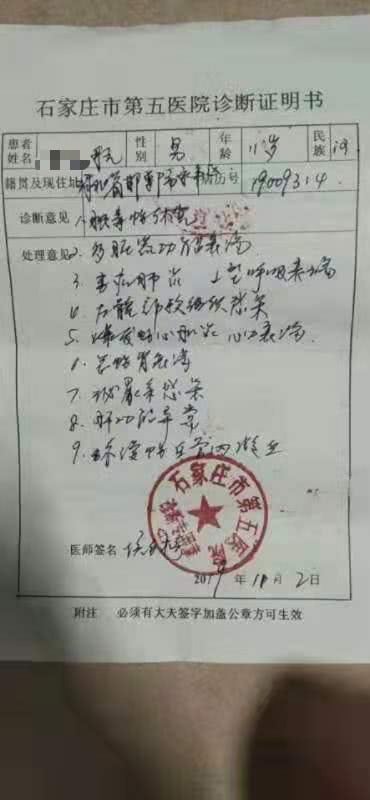 石家庄市第五医院诊断证明书
患者姓名 性别 男 年龄 11岁 民族 汉
籍贯及现住址 河北省邯郸市 病历号 19009314
诊断意见 1. 脓毒性休克
处理意见 2. 多脏器功能衰竭
3. 重症肺炎 I型呼吸衰竭
4. 左髋部软组织感染
5. 爆发性心肌炎 心力衰竭
6. 急性肾衰竭
7. 泌尿系感染
8. 肝功能异常
9. 弥漫性血管内凝血
石家庄市第五医院
医师签名
年 11月 2日
附注 必须有大夫签字加盖公章方可生效